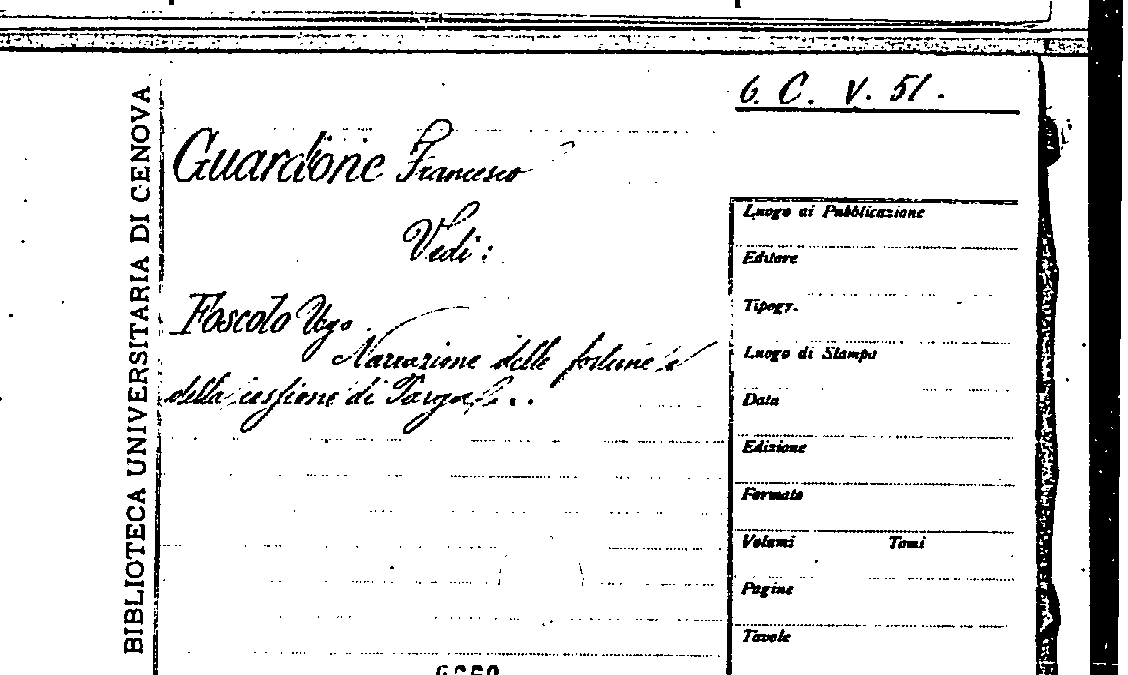 6. C. V. 51.
BIBLIOTECA UNIVERSITARIA DI GENOVA
Guardione Francesco
Vedi:
Foscolo Ugo.
Narrazione delle fortune e
della cessione di Parga
Luogo di Pubblicazione
Editore
Tipogr.
Luogo di Stampa
Data
Edizione
Formato
Volumi Tomi
Pagine
Tavole